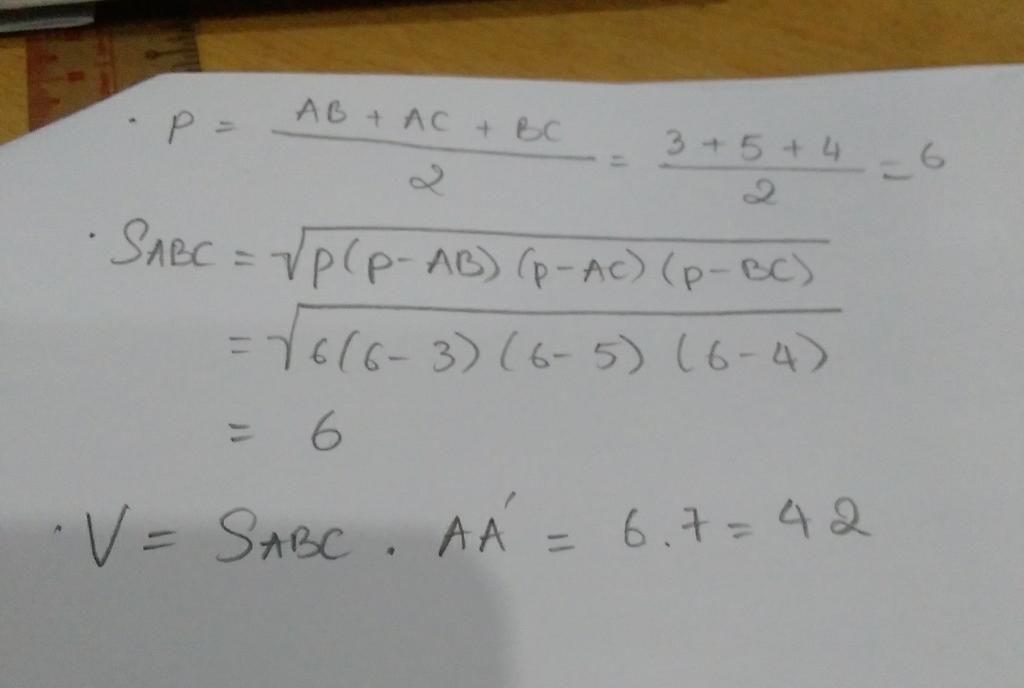 · P = (AB + AC + BC)/2 = (3 + 5 + 4)/2 = 6
· SABC = √(p(p - AB)(p - AC)(p - BC))
= √(6(6 - 3)(6 - 5)(6 - 4))
= 6
· V = SABC . AA' = 6.7 = 42